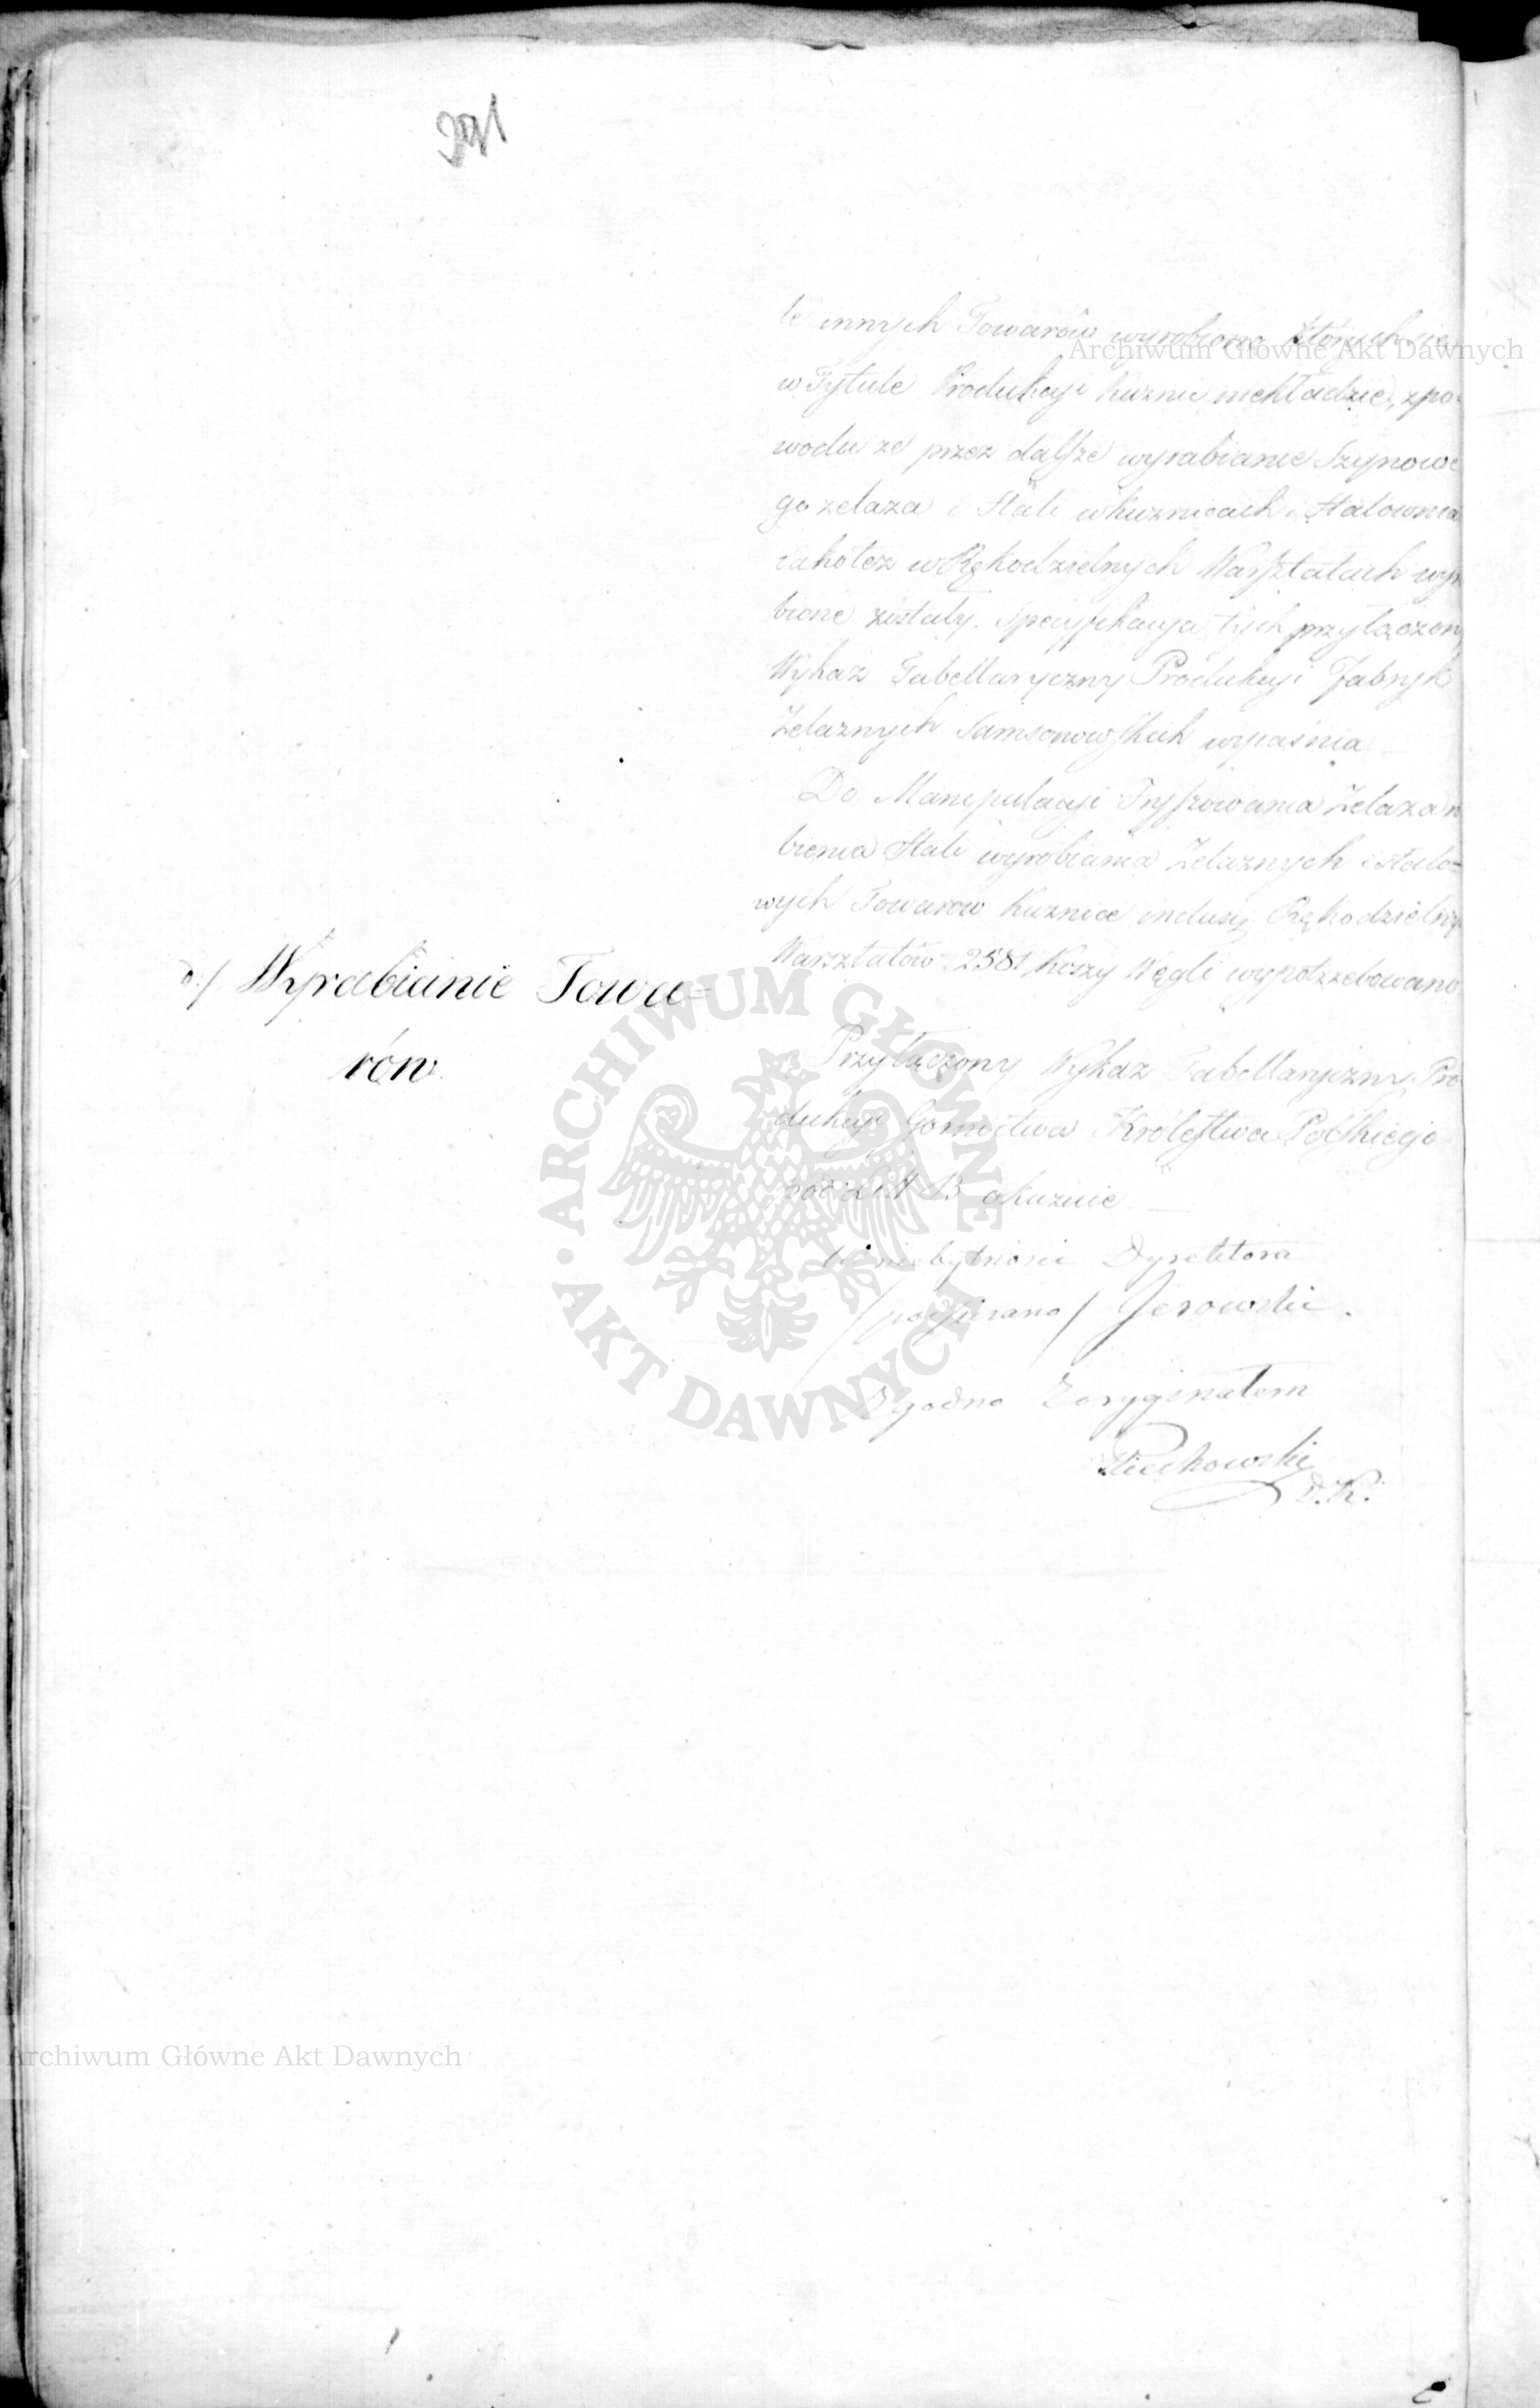 291
te innych Towarów wyrobiono których się
w Tytule Produkcyi Kuznic niekładzie, zpo-
wodu ze przez dalsze wyrabianie Szynowe
go zelaza i Stali w kuznicach i Stalownia
iakotez w Rękodzielnych Warsztatach wyr
bione zostały. Specyfikacya tych przyłączony
Wykaz Tabellaryczny Produkcyi Fabryk
Zelaznych Samsonowskich wyiaśnia
Do Manipulacyi Fryszowania Zelaza r
bienia Stali wyrobiania Zelaznych i Stalo=
wych Towarow Kuznice Rękodzielny
Warsztatów 2581 Koszy Węgli wypotrzebowano
d./ Wyrabianie Towa=
rów.
Przyłączony Wykaz Tabellaryczny Pro-
dukcyi Gornictwa Królestwa Polskiego
pod Lit B okazuie
W niebytności Dyrektora
/podpisano/ Jerowski.
Zgodno Z oryginałem
Piechowski
D. K.
Archiwum Główne Akt Dawnych
ARCHIWUM GŁÓWNE AKT DAWNYCH
Archiwum Główne Akt Dawnych